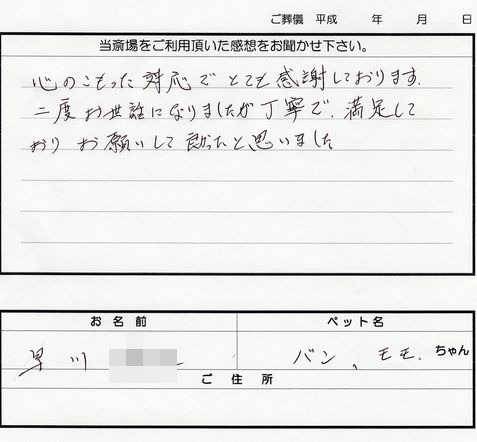 ご葬儀 平成 年 月 日
当斎場をご利用頂いた感想をお聞かせ下さい。
心のこもった対応でとても感謝しております.
二度お世話になりましたが丁寧で、満足して
おりお願いして良かったと思いました
お名前 ペット名
早川 バン、モモ. ちゃん
ご住所